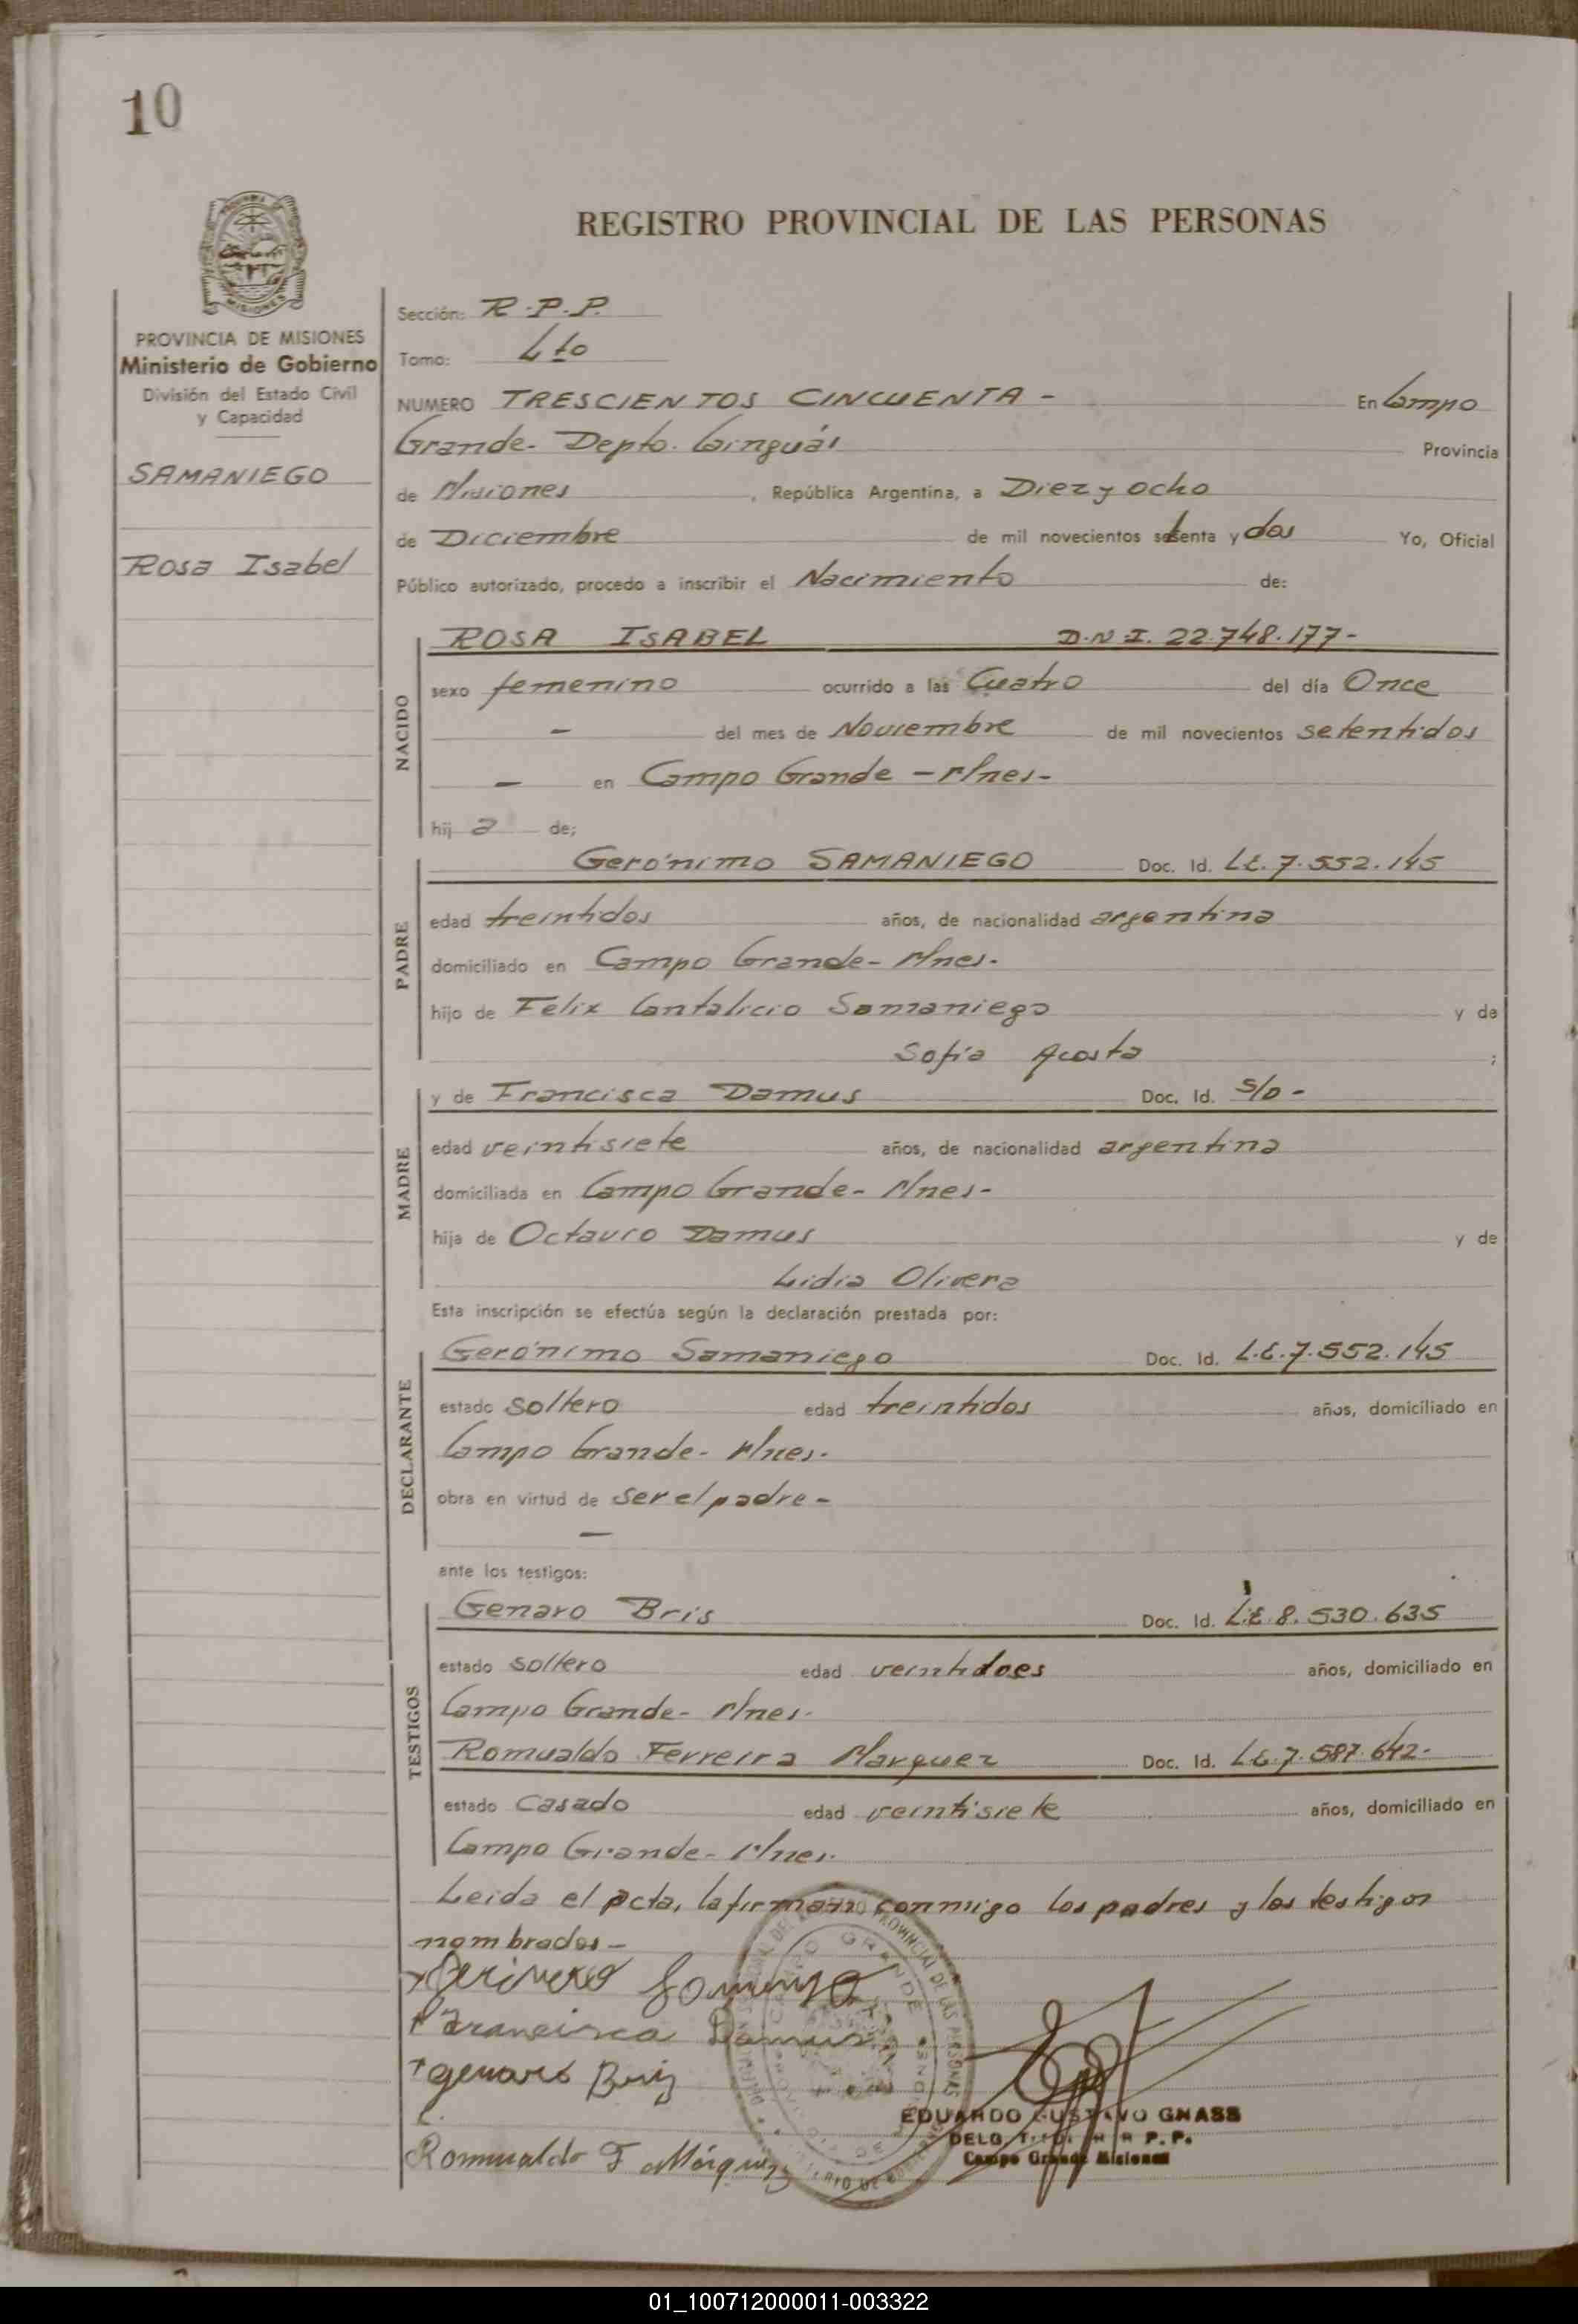 10
REGISTRO PROVINCIAL DE LAS PERSONAS
PROVINCIA DE MISIONES
Ministerio de Gobierno
División del Estado Civil
y Capacidad
SAMANIEGO
Rosa Isabel
Sección: R.P.P.
Tomo: 4to
NUMERO TRESCIENTOS CINCUENTA - En Campo
Grande- Depto. Cainguás Provincia
de Misiones, República Argentina, a Diez y ocho
de Diciembre de mil novecientos setenta y dos Yo, Oficial
Público autorizado, procedo a inscribir el Nacimiento de:
NACIDO
ROSA ISABEL D.N.I. 22.748.177-
sexo femenino ocurrido a las Cuatro del día Once
- del mes de Noviembre de mil novecientos setentidos
- en Campo Grande - Mnes-
hij a de;
PADRE
Gerónimo SAMANIEGO Doc. Id. L.E. 7.552.145
edad treintidos años, de nacionalidad argentina
domiciliado en Campo Grande- Mnes.
hijo de Felix Cantalicio Samaniego y de
Sofia Acosta ;
MADRE
y de Francisca Damus Doc. Id. S/D -
edad veintisiete años, de nacionalidad argentina
domiciliada en Campo Grande- Mnes-
hija de Octavio Damus y de
Lidia Olivera
Esta inscripción se efectúa según la declaración prestada por:
DECLARANTE
Gerónimo Samaniego Doc. Id. L.E. 7.552.145
estado soltero edad treintidos años, domiciliado en
Campo Grande- Mnes.
obra en virtud de ser el padre -
-
ante los testigos:
TESTIGOS
Genaro Bris Doc. Id. L.E. 8.530.635
estado soltero edad veintidoes años, domiciliado en
Campo Grande- Mnes.
Romualdo Ferreira Marquez Doc. Id. L.E. 7.587.642-
estado Casado edad veintisiete años, domiciliado en
Campo Grande- Mnes.
Leida el acta, la firman conmigo los padres y los testigos
nombrados -
Francisca Damus
genaro Briz
Romualdo F Márquez
EDUARDO GUSTAVO GNASS
DELG. R. P. P.
Campo Grande Misiones
01_100712000011-003322